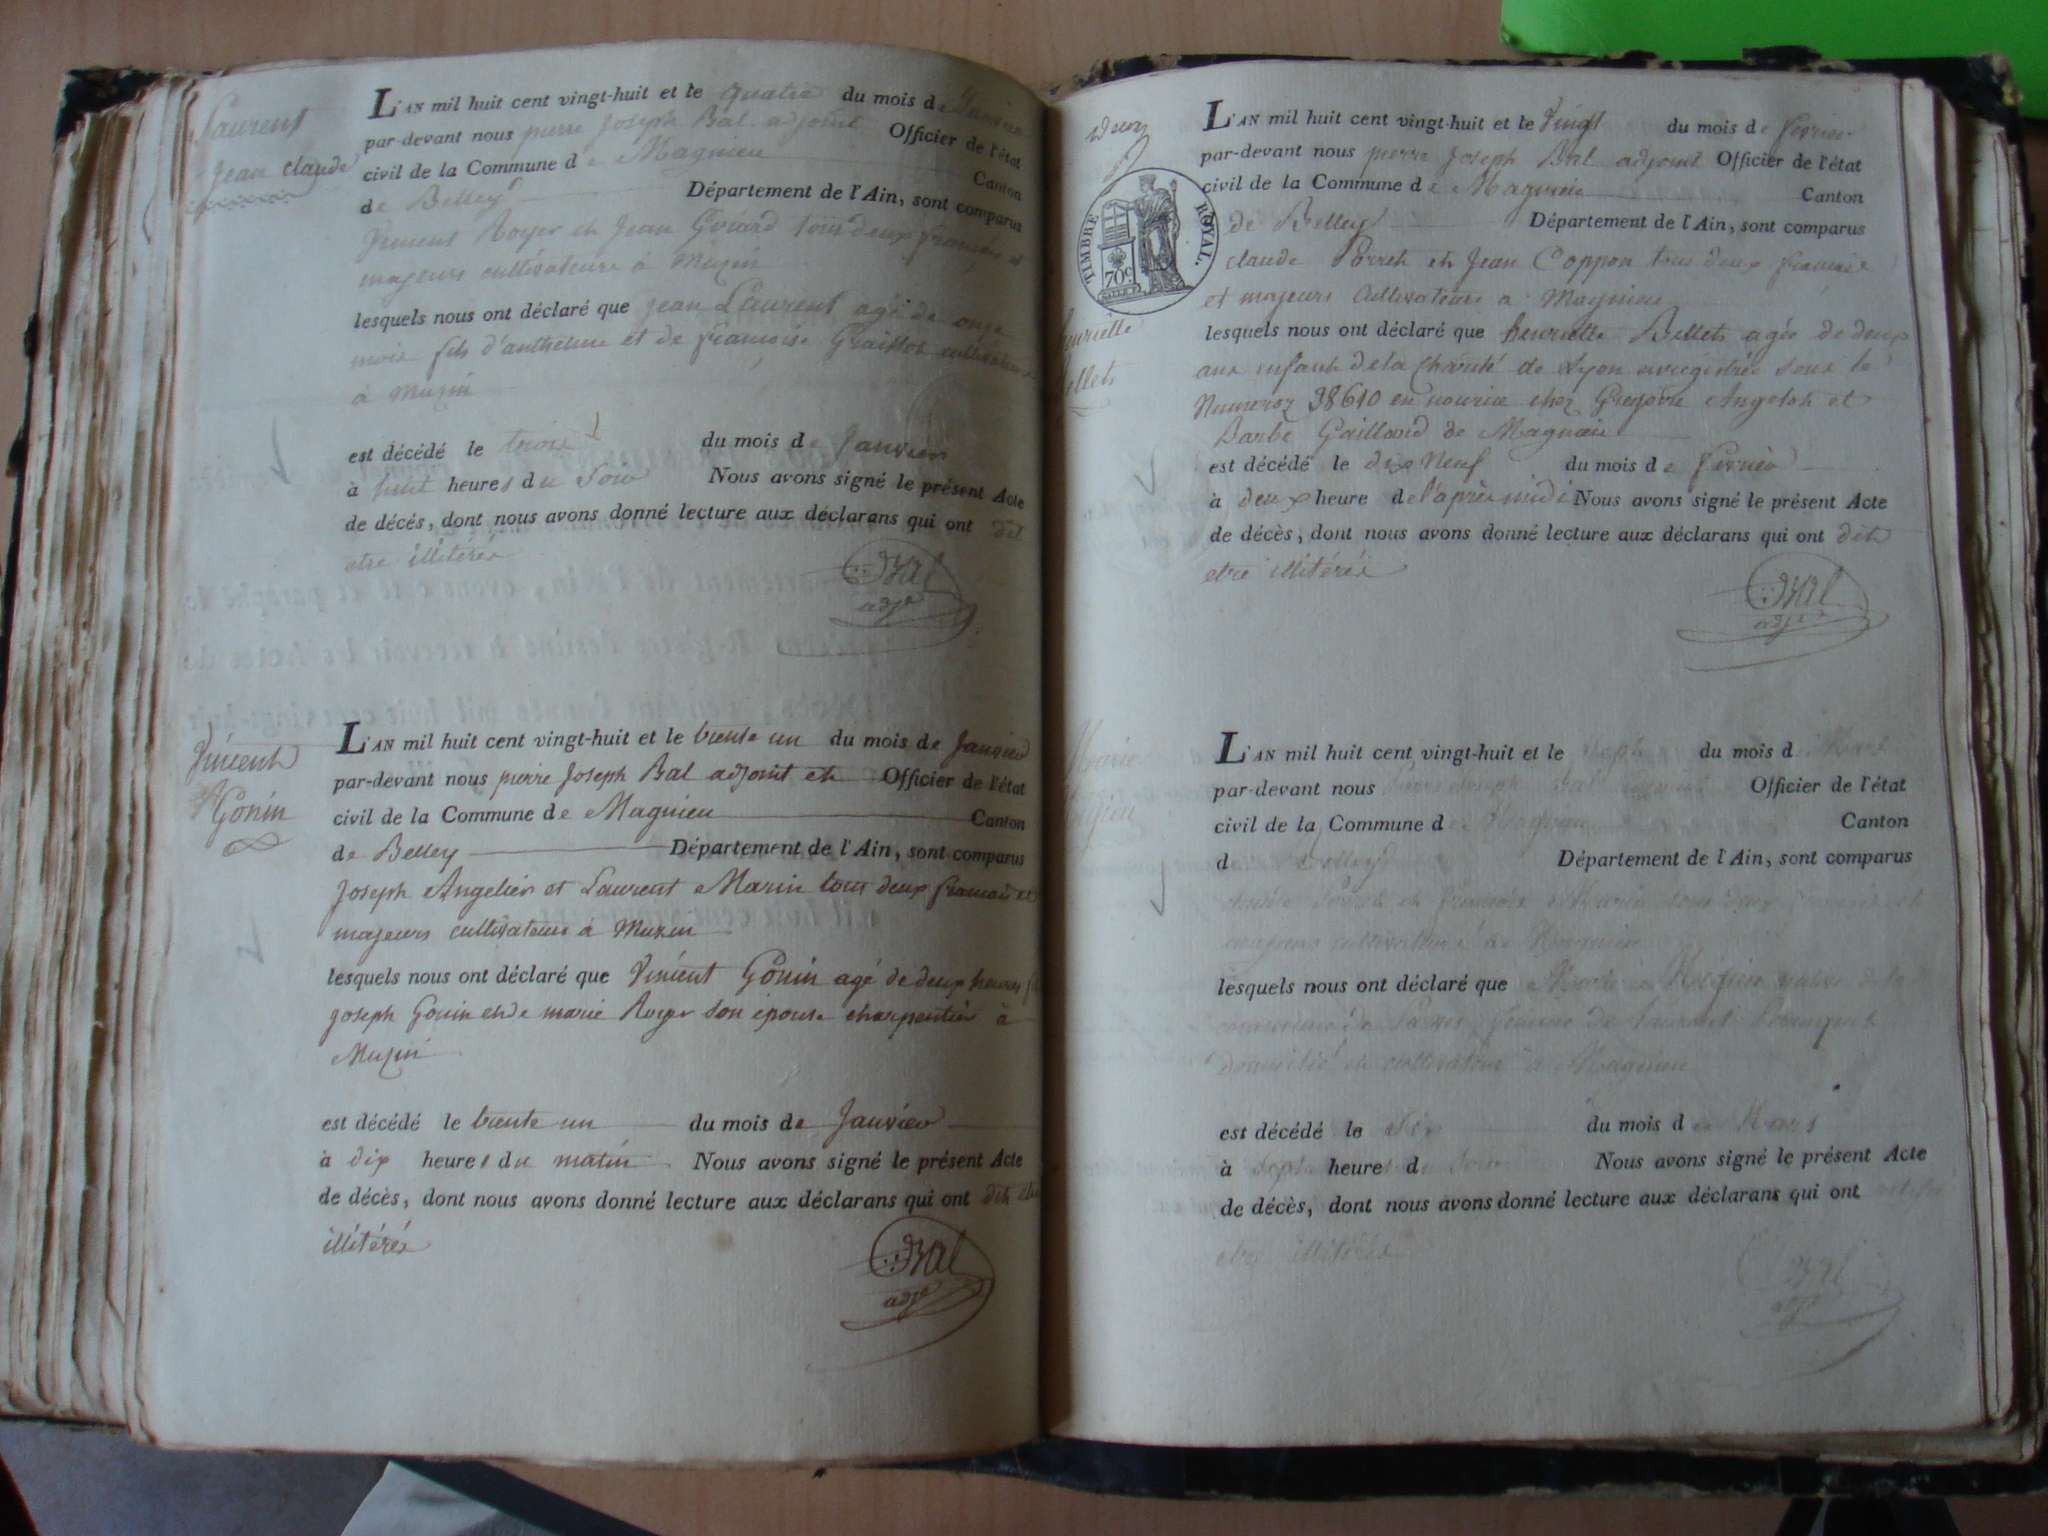 Laurent
Jean Claude
L'AN mil huit cent vingt-huit et le quatre du mois de Janvier
par-devant nous pierre Joseph Bal adjoint Officier de l'état
civil de la Commune de Magnieu Canton
de Belley Département de l'Ain, sont comparus
Royer et Jean tous deux français et
majeurs cultivateurs à Muzin
lesquels nous ont déclaré que jean Laurent agé de onze
mois fils d'anthelme et de françoise cultivateur
à Muzin
est décédé le trois du mois de Janvier
à huit heures du Soir Nous avons signé le présent Acte
de décès, dont nous avons donné lecture aux déclarans qui ont dit
etre illitérés
Bal
adjt
Vincent
Gonin
L'AN mil huit cent vingt-huit et le trente un du mois de Janvier
par-devant nous pierre Joseph Bal adjoint et Officier de l'état
civil de la Commune de Magnieu Canton
de Belley Département de l'Ain, sont comparus
Joseph Angelier et Laurent Marin tous deux français et
majeurs cultivateurs à Muzin
lesquels nous ont déclaré que Vincent Gonin agé de deux heures
joseph Gonin et de marie Royer son épouse charpentier à
Muzin
est décédé le trente un du mois de Janvier
à dix heures du matin Nous avons signé le présent Acte
de décès, dont nous avons donné lecture aux déclarans qui ont dit etre
illitérés
Bal
adjt
TIMBRE ROYAL.
70c
henriette
Bellet
L'AN mil huit cent vingt-huit et le vingt du mois de fevrier
par-devant nous pierre Joseph Bal adjoint Officier de l'état
civil de la Commune de Magnieu Canton
de Belley Département de l'Ain, sont comparus
claude Perret et Jean Coppon tous deux français
et majeurs Cultivateurs a Magnieu
lesquels nous ont déclaré que henriette Bellet agée de deux
ans enfant de la Charité de Lyon enregistrée sous le
Numeros 38610 en nourice chez Gregoire et
Barbe Gaillard de Magnieu
est décédé le dix Neuf du mois de fevrier
à deux heure de l'après midi Nous avons signé le présent Acte
de décès, dont nous avons donné lecture aux déclarans qui ont dit
etre illitérés
Bal
adjt
Marie
L'AN mil huit cent vingt-huit et le sept du mois de Mars
par-devant nous pierre Joseph Bal adjoint Officier de l'état
civil de la Commune de Magnieu Canton
de Belley Département de l'Ain, sont comparus
claude Perret et françois Marin tous deux français et
majeurs cultivateurs à Magnieu
lesquels nous ont déclaré que Marie native de la
commune de femme de
domicilié et cultivateur à Magnieu
est décédé le Six du mois de Mars
à Sept heures du Soir Nous avons signé le présent Acte
de décès, dont nous avons donné lecture aux déclarans qui ont
etre illitérés
Bal
adjt